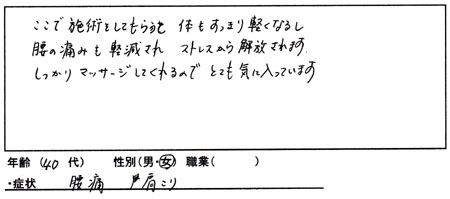 ここで施術をしてもらうと 体もすっきり軽くなるし
腰の痛みも軽減され ストレスから解放されます
しっかりマッサージしてくれるので とても気に入っています
年齢(40代) 性別(男・女) 職業( )
・症状 腰痛 肩こり